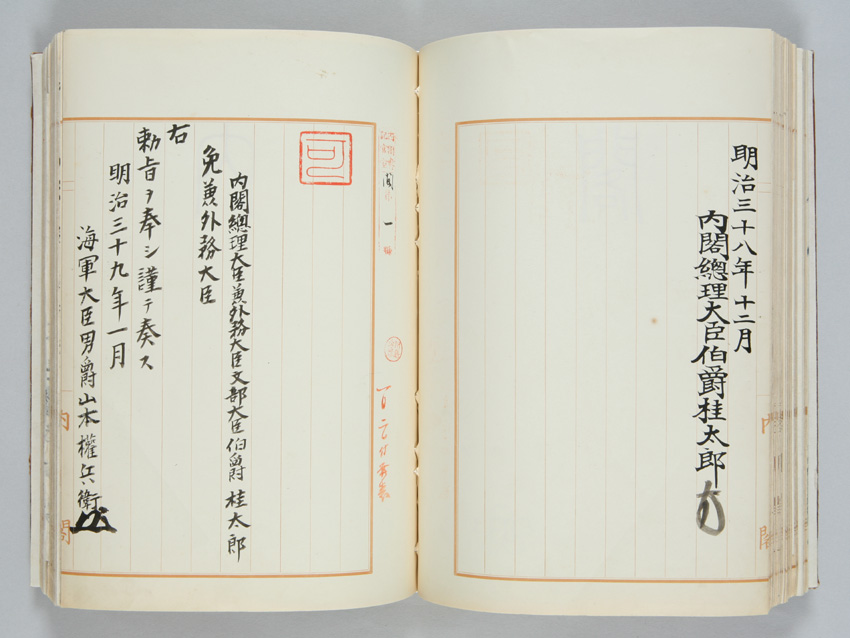 明治三十八年十二月
内閣總理大臣伯爵桂太郎
閣一
可
内閣總理大臣兼外務大臣文部大臣伯爵 桂太郎
免兼外務大臣
右
勅旨ヲ奉シ謹テ奏ス
明治三十九年一月
海軍大臣男爵山本權兵衛
内閣
内閣